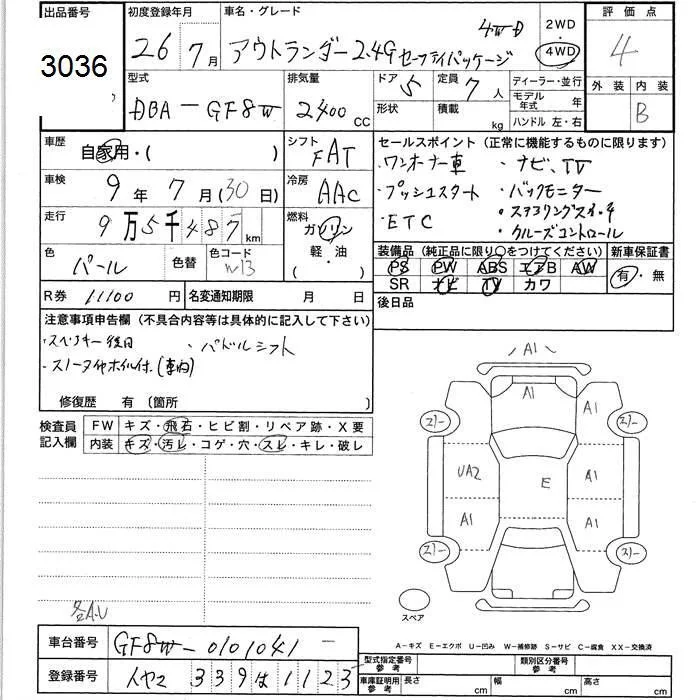 出品番号 3036
初度登録年月 26 7月
車名・グレード アウトランダー 2.4G セーフティパッケージ 4WD
2WD 4WD
評価点 4
外装 内装 B
型式 DBA-GF8W
排気量 2400 CC
ドア 5 定員 7人
形状 積載 kg
ディーラー・並行
モデル年式 年
ハンドル 左・右
車歴 自家用・( )
シフト FAT
車検 9年 7月(30日)
冷房 AAC
走行 9万5千487km
燃料 ガソリン 軽・油 ( )
色 パール 色替 色コード W13
R券 11100円 名変通知期限 月 日
セールスポイント (正常に機能するものに限ります)
・ワンオーナー車 ・ナビ、TV
・プッシュスタート ・バックモニター
・ETC ・ステアリングスイッチ
・クルーズコントロール
装備品 (純正品に限り○をつけてください) 新車保証書
PS PW ABS エアB AW 有・無
SR ナビ TV カワ
後日品
注意事項申告欄 (不具合内容等は具体的に記入して下さい)
・スペアキー後日 ・パドルシフト
・スノータイヤホイル付.(車内)
修復歴 有 (箇所 )
検査員記入欄 FW キズ・飛石・ヒビ割・リペア跡・X要
内装 キズ・汚レ・コゲ・穴・スレ・キレ・破レ
A1
A1 A1
スリー スリー
UA2 E A1
A1 A1
スリー スリー
スペア
各A.U
A-キズ E-エクボ U-凹み W-補修跡 S-サビ C-腐食 XX-交換済
車台番号 GF8W-0101041-
登録番号 339は1123
型式指定番号 参考 類別区分番号 参考
車庫証明用 参考 長さ cm 幅 cm 高さ cm